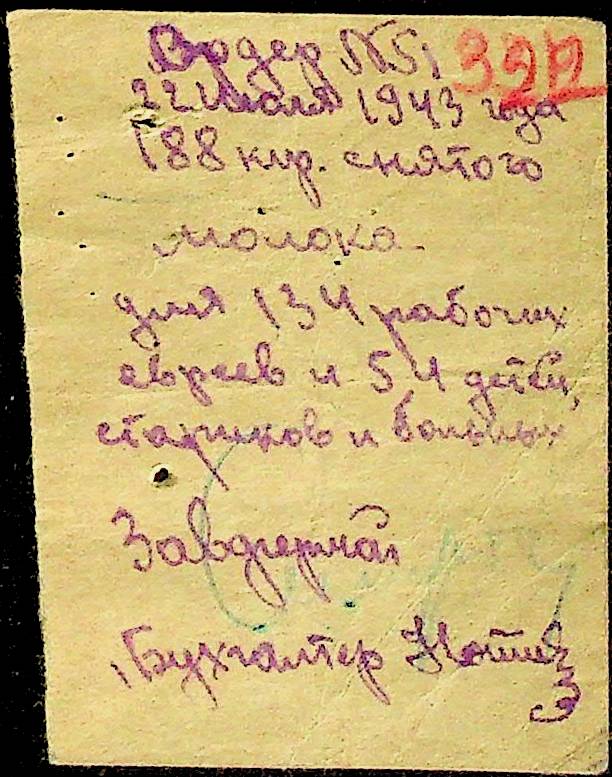 Водер №5, 322
22 июля 1943 года
188 кгр. снятого
молока
для 134 рабочих
евреев и 54 детей,
стариков и больных
Завдермой
Бухгалтер